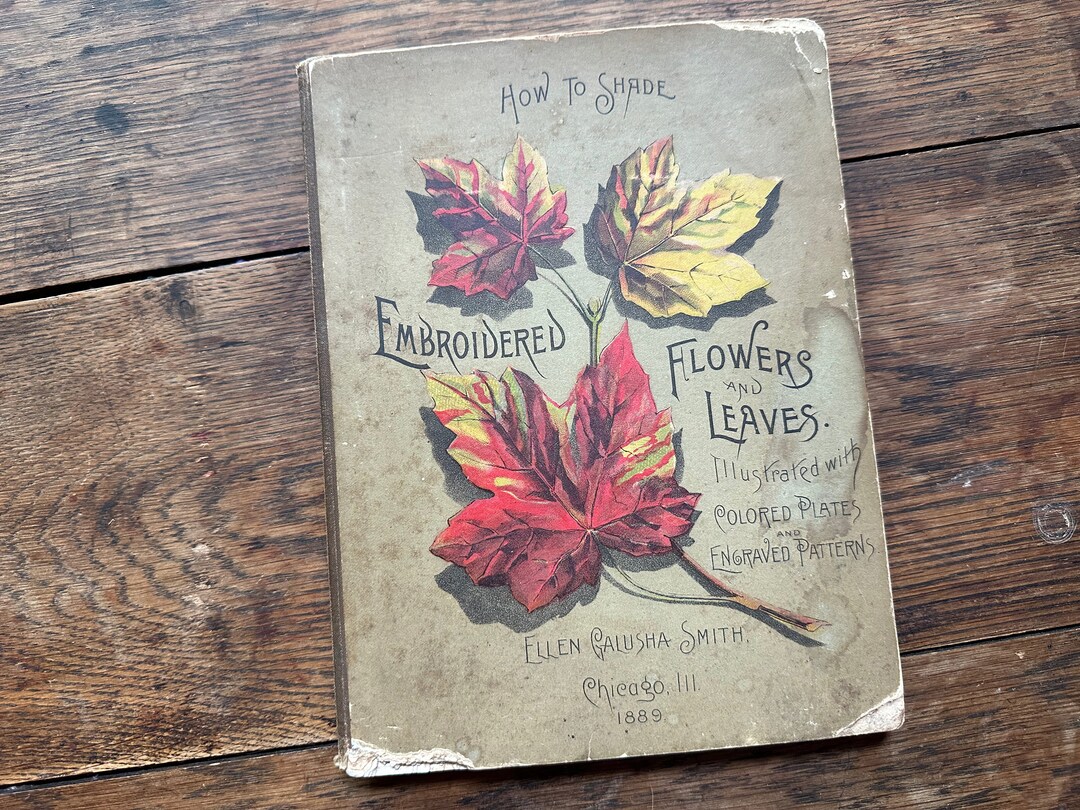 HOW TO SHADE
EMBROIDERED
FLOWERS
AND
LEAVES.
Illustrated with
COLORED PLATES
AND
ENGRAVED PATTERNS
ELLEN GALUSHA SMITH.
Chicago, Ill.
1889.